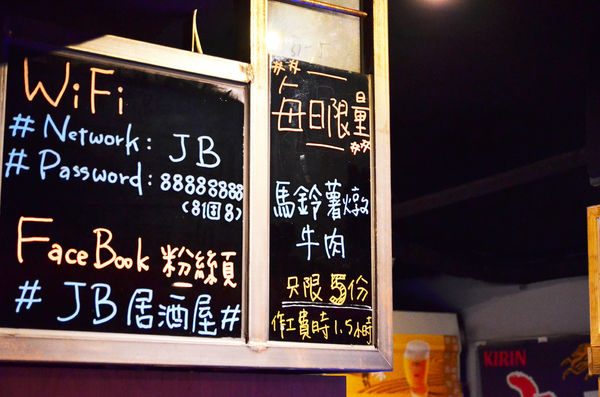 WiFi
# Network: JB
# Password: 88888888
(8個8)
FaceBook 粉絲頁
# JB居酒屋#
每日限量
馬鈴薯燉
牛肉
只限 5份
作工費時1.5小時
KIRIN